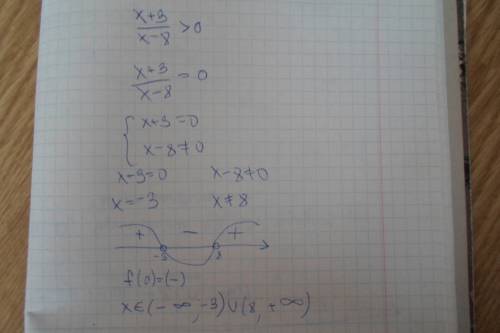 x+3/x-8 > 0
x+3/x-8 = 0
{ x+3=0
x-8≠0
x-3=0 x-8≠0
x=-3 x≠8
+ - +
-3 8
f(0)=(-)
x∈(-∞,-3)∪(8,+∞)